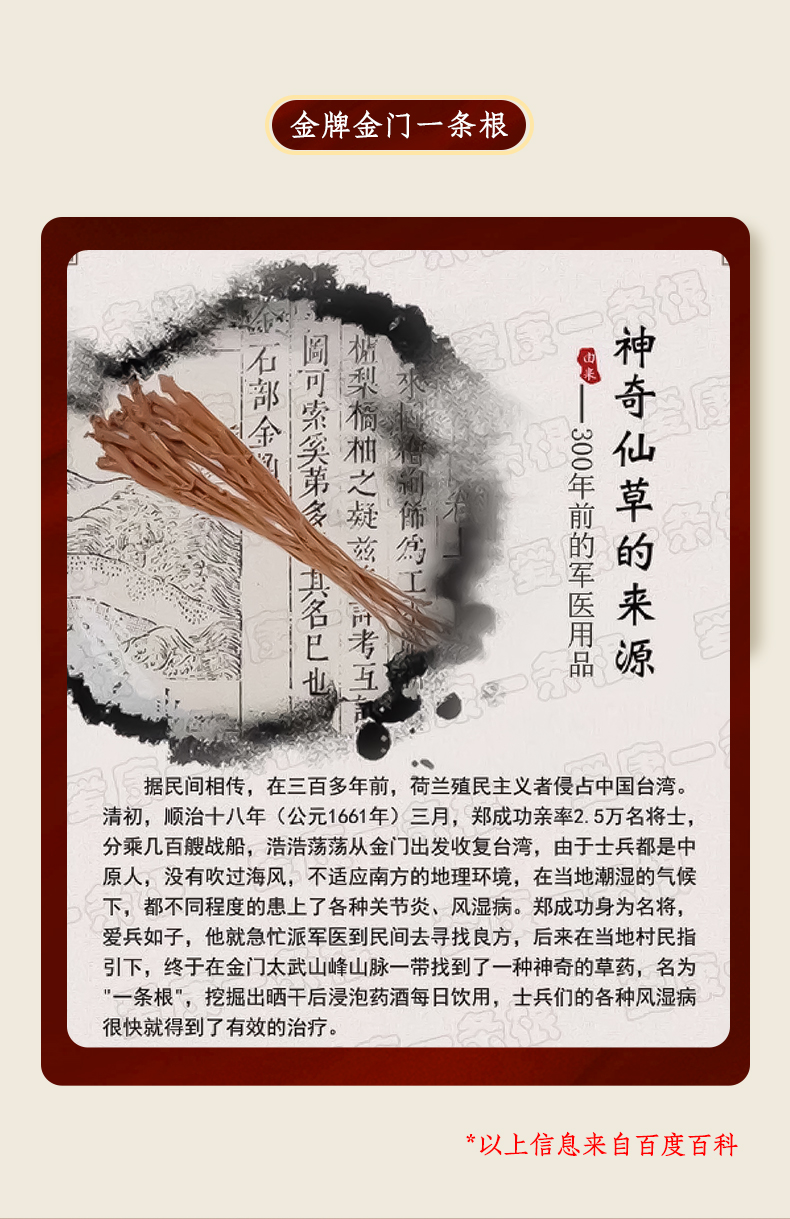 金牌金门一条根
神奇仙草的来源
由来
300年前的军医用品
石部金
圖可索奚第多
其名巳也
櫨梨橘柚之凝茲
考互
飾為工
据民间相传，在三百多年前，荷兰殖民主义者侵占中国台湾。
清初，顺治十八年（公元1661年）三月，郑成功亲率2.5万名将士，
分乘几百艘战船，浩浩荡荡从金门出发收复台湾，由于士兵都是中
原人，没有吹过海风，不适应南方的地理环境，在当地潮湿的气候
下，都不同程度的患上了各种关节炎、风湿病。郑成功身为名将，
爱兵如子，他就急忙派军医到民间去寻找良方，后来在当地村民指
引下，终于在金门太武山峰山脉一带找到了一种神奇的草药，名为
"一条根"，挖掘出晒干后浸泡药酒每日饮用，士兵们的各种风湿病
很快就得到了有效的治疗。
爱康一条根
*以上信息来自百度百科